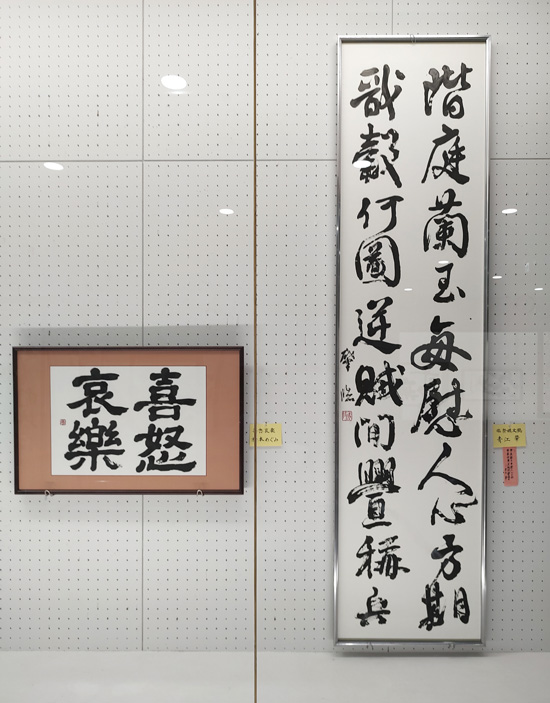 階庭蘭玉每慰人心方期
戩穀何圖逆賊閒釁稱兵
肇臨
喜怒
哀樂